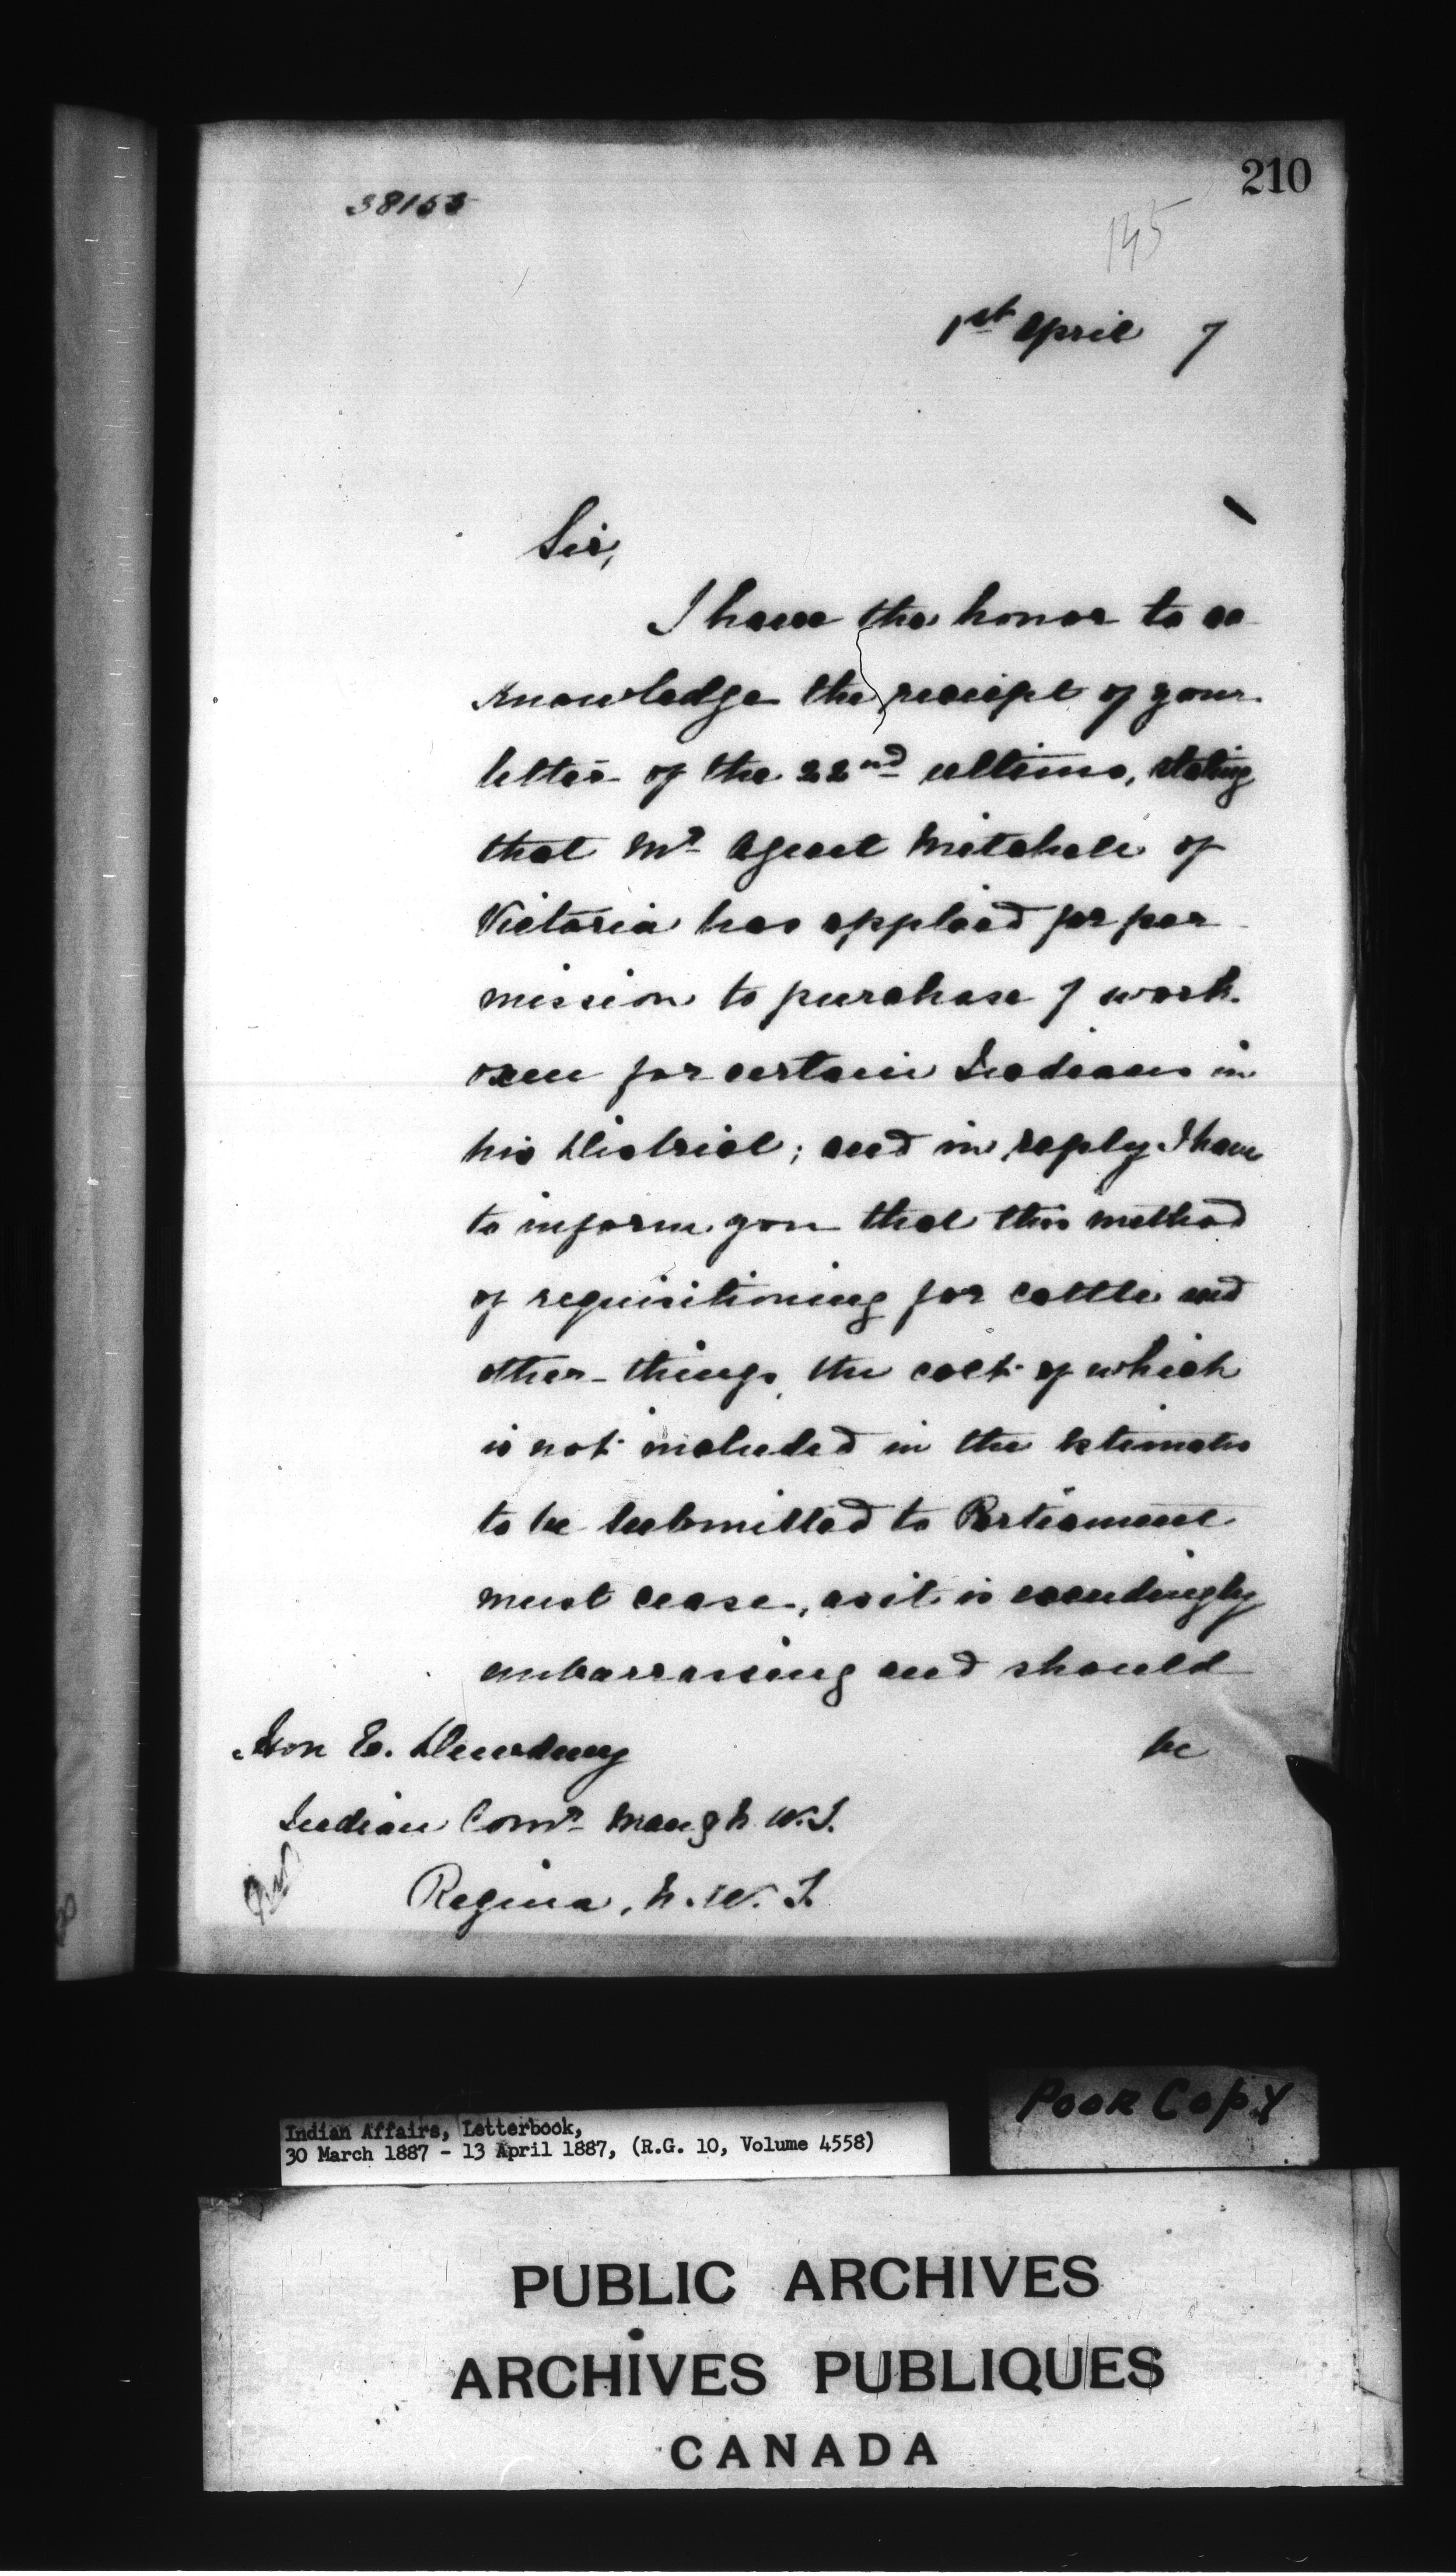 210
38155
145
1st April 7
Sir,
I have the honor to ac-
knowledge the receipt of your
letter of the 22nd ultimo, stating
that Mr Agent Mitchell of
Victoria has applied for per-
mission to purchase 7 work
oxen for certain Indians in
his District; and in reply I have
to inform you that this method
of requisitioning for cattle and
other things, the cost of which
is not included in the Estimates
to be submitted to Parliament
must cease, as it is exceedingly
embarrassing and should
be
Hon E. Dewdney
Indian Comr Man & N.W.T.
Regina, N.W.T.
Poor Copy
Indian Affairs, Letterbook,
30 March 1887 - 13 April 1887, (R.G. 10, Volume 4558)
PUBLIC ARCHIVES
ARCHIVES PUBLIQUES
CANADA